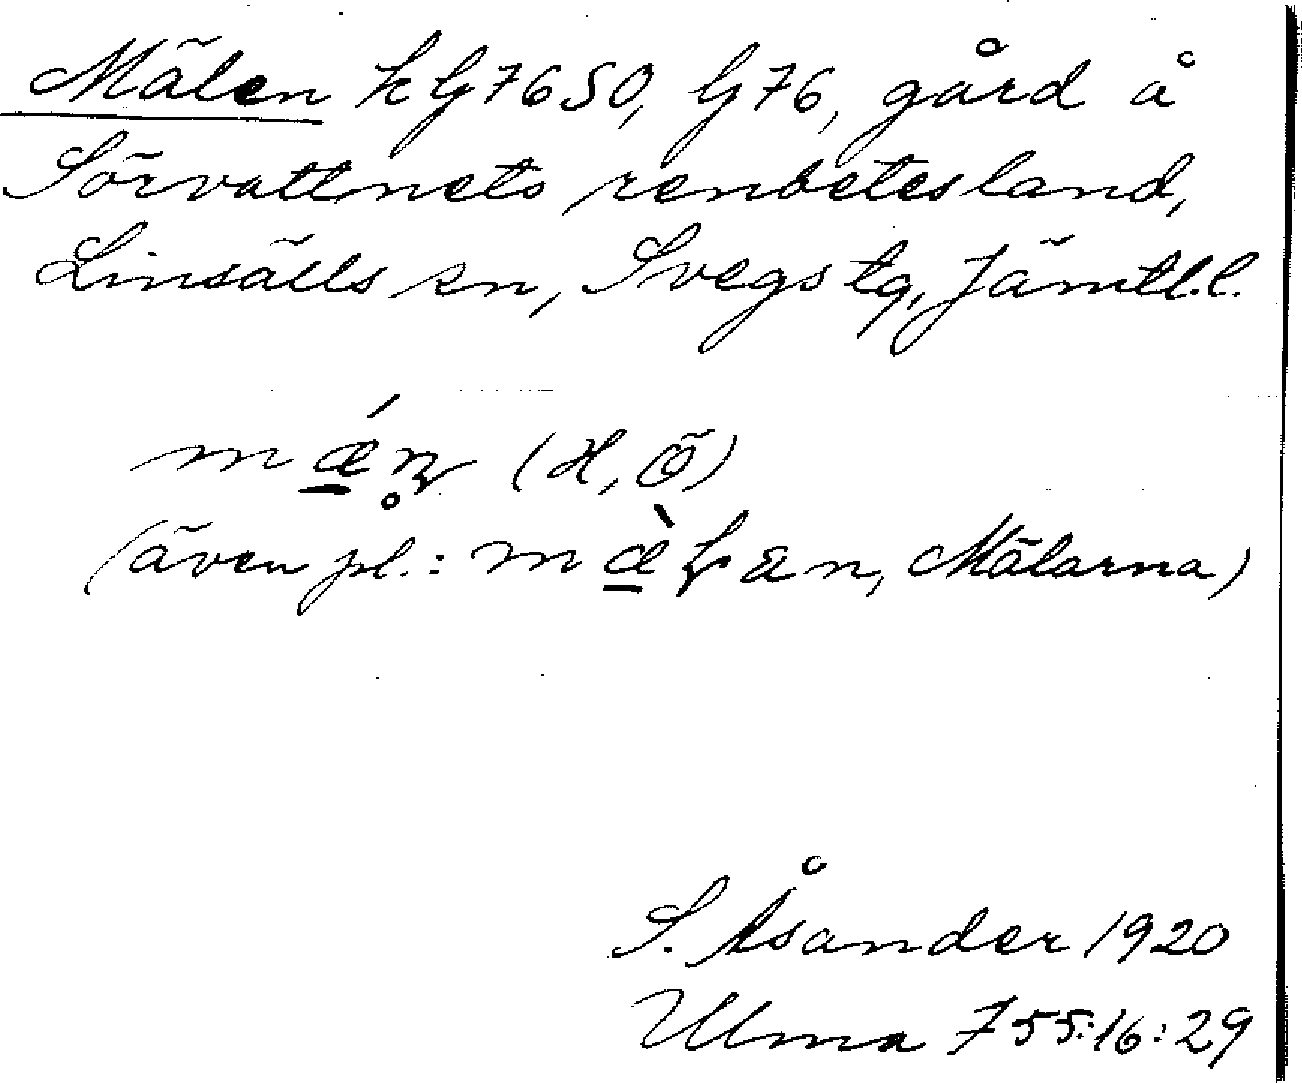 Mälen k G7650, G76, gård å
Sörvattnets renbetesland,
Linsälls sn, Svegs tg, Jämtl.l.
(H, Ö)
(även pl.: Mälarna)
S. Åsander 1920
Ulma 755:16:29